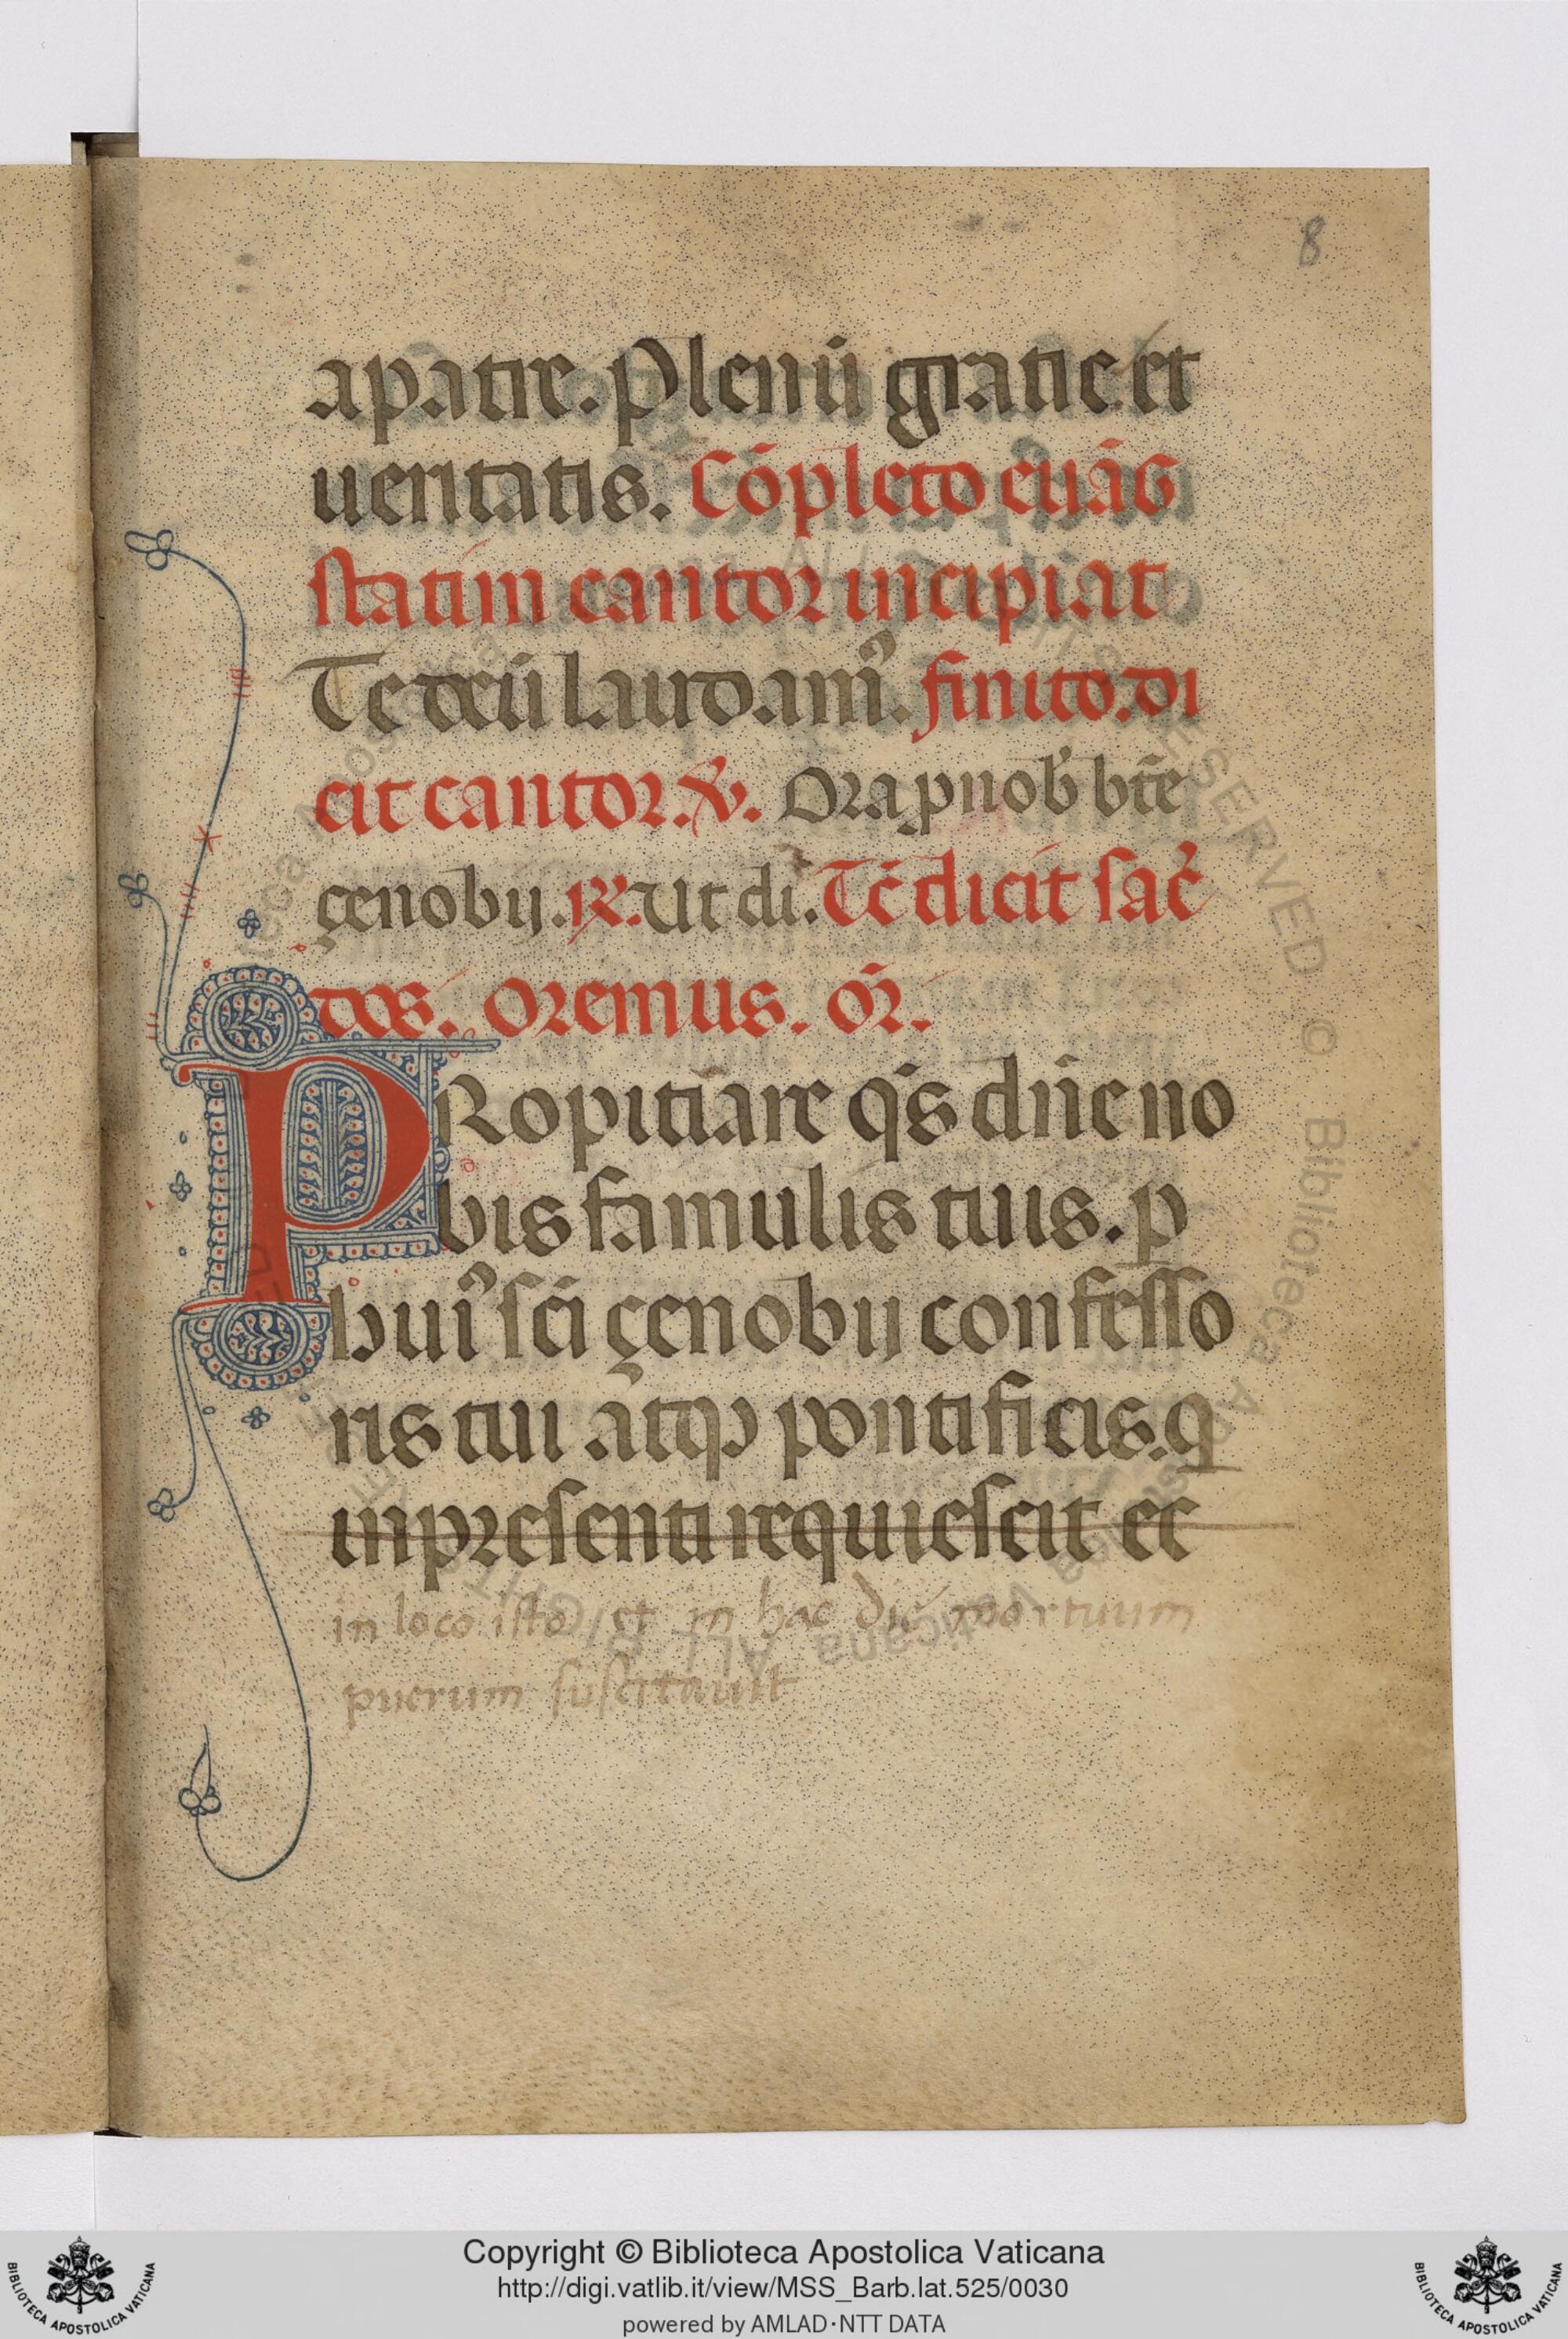 8
a patre. Plenū gratie et
ueritatis. Cōpleto euāg
statim cantor incipiat
Te deū laudamꝰ. finito. di
cit cantor. ℣. Ora ꝓ nob̄ bt̄e
çenobij. ℟. Ut di. Tc̄ dicit sac̄
dos. Oremus. or̄.
PRopitiare q̄s dn̄e no
bis famulis tuis. p
huiꝰ sc̄i çenobij confesso
ris tui atqꝫ pontificis. q
in presenti requiescit ec
in loco isto et in hac die mortuum
puerum suscitauit
Copyright © Biblioteca Apostolica Vaticana
http://digi.vatlib.it/view/MSS_Barb.lat.525/0030
powered by AMLAD·NTT DATA
BIBLIOTECA APOSTOLICA VATICANA
BIBLIOTECA APOSTOLICA VATICANA